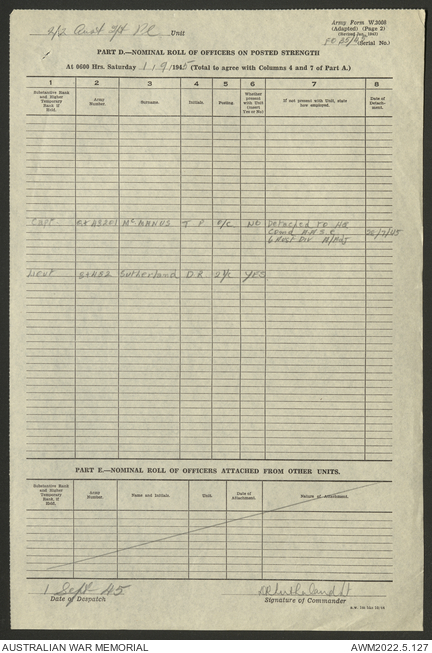 Army Form W.3008
(Adapted) (Page 2)
2/2 Aust Unit
(Serial No.)
PART D.—NOMINAL ROLL OF OFFICERS ON POSTED STRENGTH
At 0600 Hrs. Saturday 1/9/1945 (Total to agree with Columns 4 and 7 of Part A.)
1 2 3 4 5 6 7 8
Substantive Rank and Higher Temporary Rank if Held. Army Number. Surname. Initials. Posting. Whether present with Unit (Insert Yes or No) If not present with Unit, state how employed. Date of Detachment.
Capt McMANUS T P O/C NO Detached to HQ
30/7/45
Lieut Sutherland D R 2 I/C YES
PART E.—NOMINAL ROLL OF OFFICERS ATTACHED FROM OTHER UNITS.
Substantive Rank and Higher Temporary Rank if Held. Army Number. Name and Initials. Unit. Date of Attachment. Nature of Attachment.
1 Sept 45
Date of Despatch
DR Sutherland Lt
Signature of Commander
AUSTRALIAN WAR MEMORIAL
AWM2022.5.127